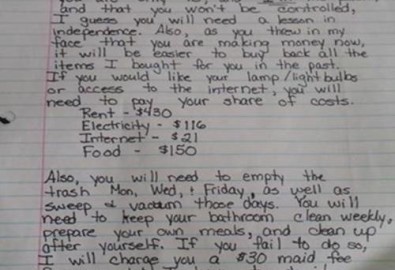 and that you won't be controlled,
I guess you will need a lesson in
independence. Also, as you threw in my
face that you are making money now,
it will be easier to buy back all the
items I bought for you in the past.
If you would like your lamp/light bulbs
or access to the internet, you will
need to pay your share of costs.
Rent - $430
Electricity - $116
Internet - $21
Food - $150
Also, you will need to empty the
trash Mon, Wed, & Friday, as well as
sweep & vacuum those days. You will
need to keep your bathroom clean weekly,
prepare your own meals, and clean up
after yourself. If you fail to do so,
I will charge you a $30 maid fee